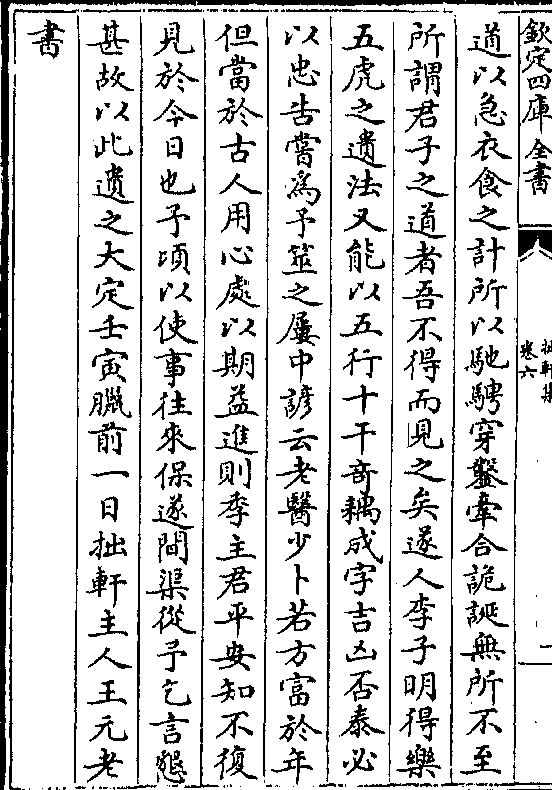 欽定四庫全書
拙軒集
卷六
道以急衣食之計所以馳騁穿鑿牽合詭誕無所不至
所謂君子之道者吾不得而見之矣遂人李子明得樂
五虎之遺法又能以五行十干竒耦成字吉凶否泰必
以忠告嘗為予筮之屢中諺云老醫少卜若方富於年
但當於古人用心處以期益進則季主君平安知不復
見於今日也予頃以使事往來保遂間渠從予乞言懇
甚故以此遺之大定壬寅臘前一日拙軒主人王元老
書